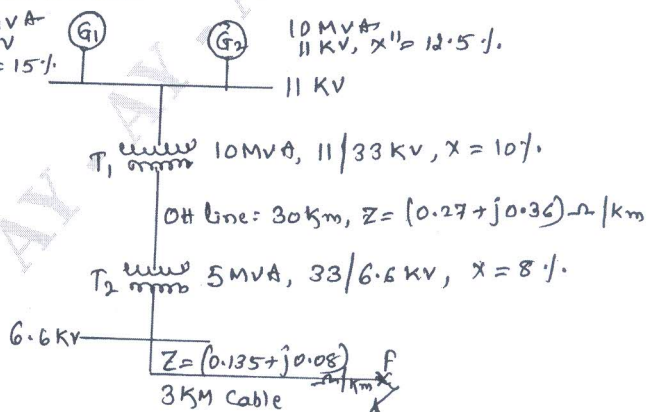 VA
V
= 15%
G1
G2
10 MVA
11 KV, x" = 12.5 %.
11 KV
T1 10 MVA, 11/33 KV, X = 10%.
OH line: 30Km, Z = (0.27+j0.36) Ω/Km
T2 5 MVA, 33/6.6 KV, X = 8 %.
6.6 KV
Z = (0.135+j0.08) Ω/Km
F
3 KM Cable
AY . AY